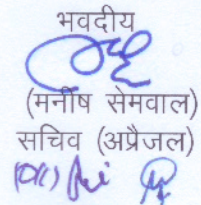 भवदीय
(मनीष सेमवाल)
सचिव (अप्रैजल)